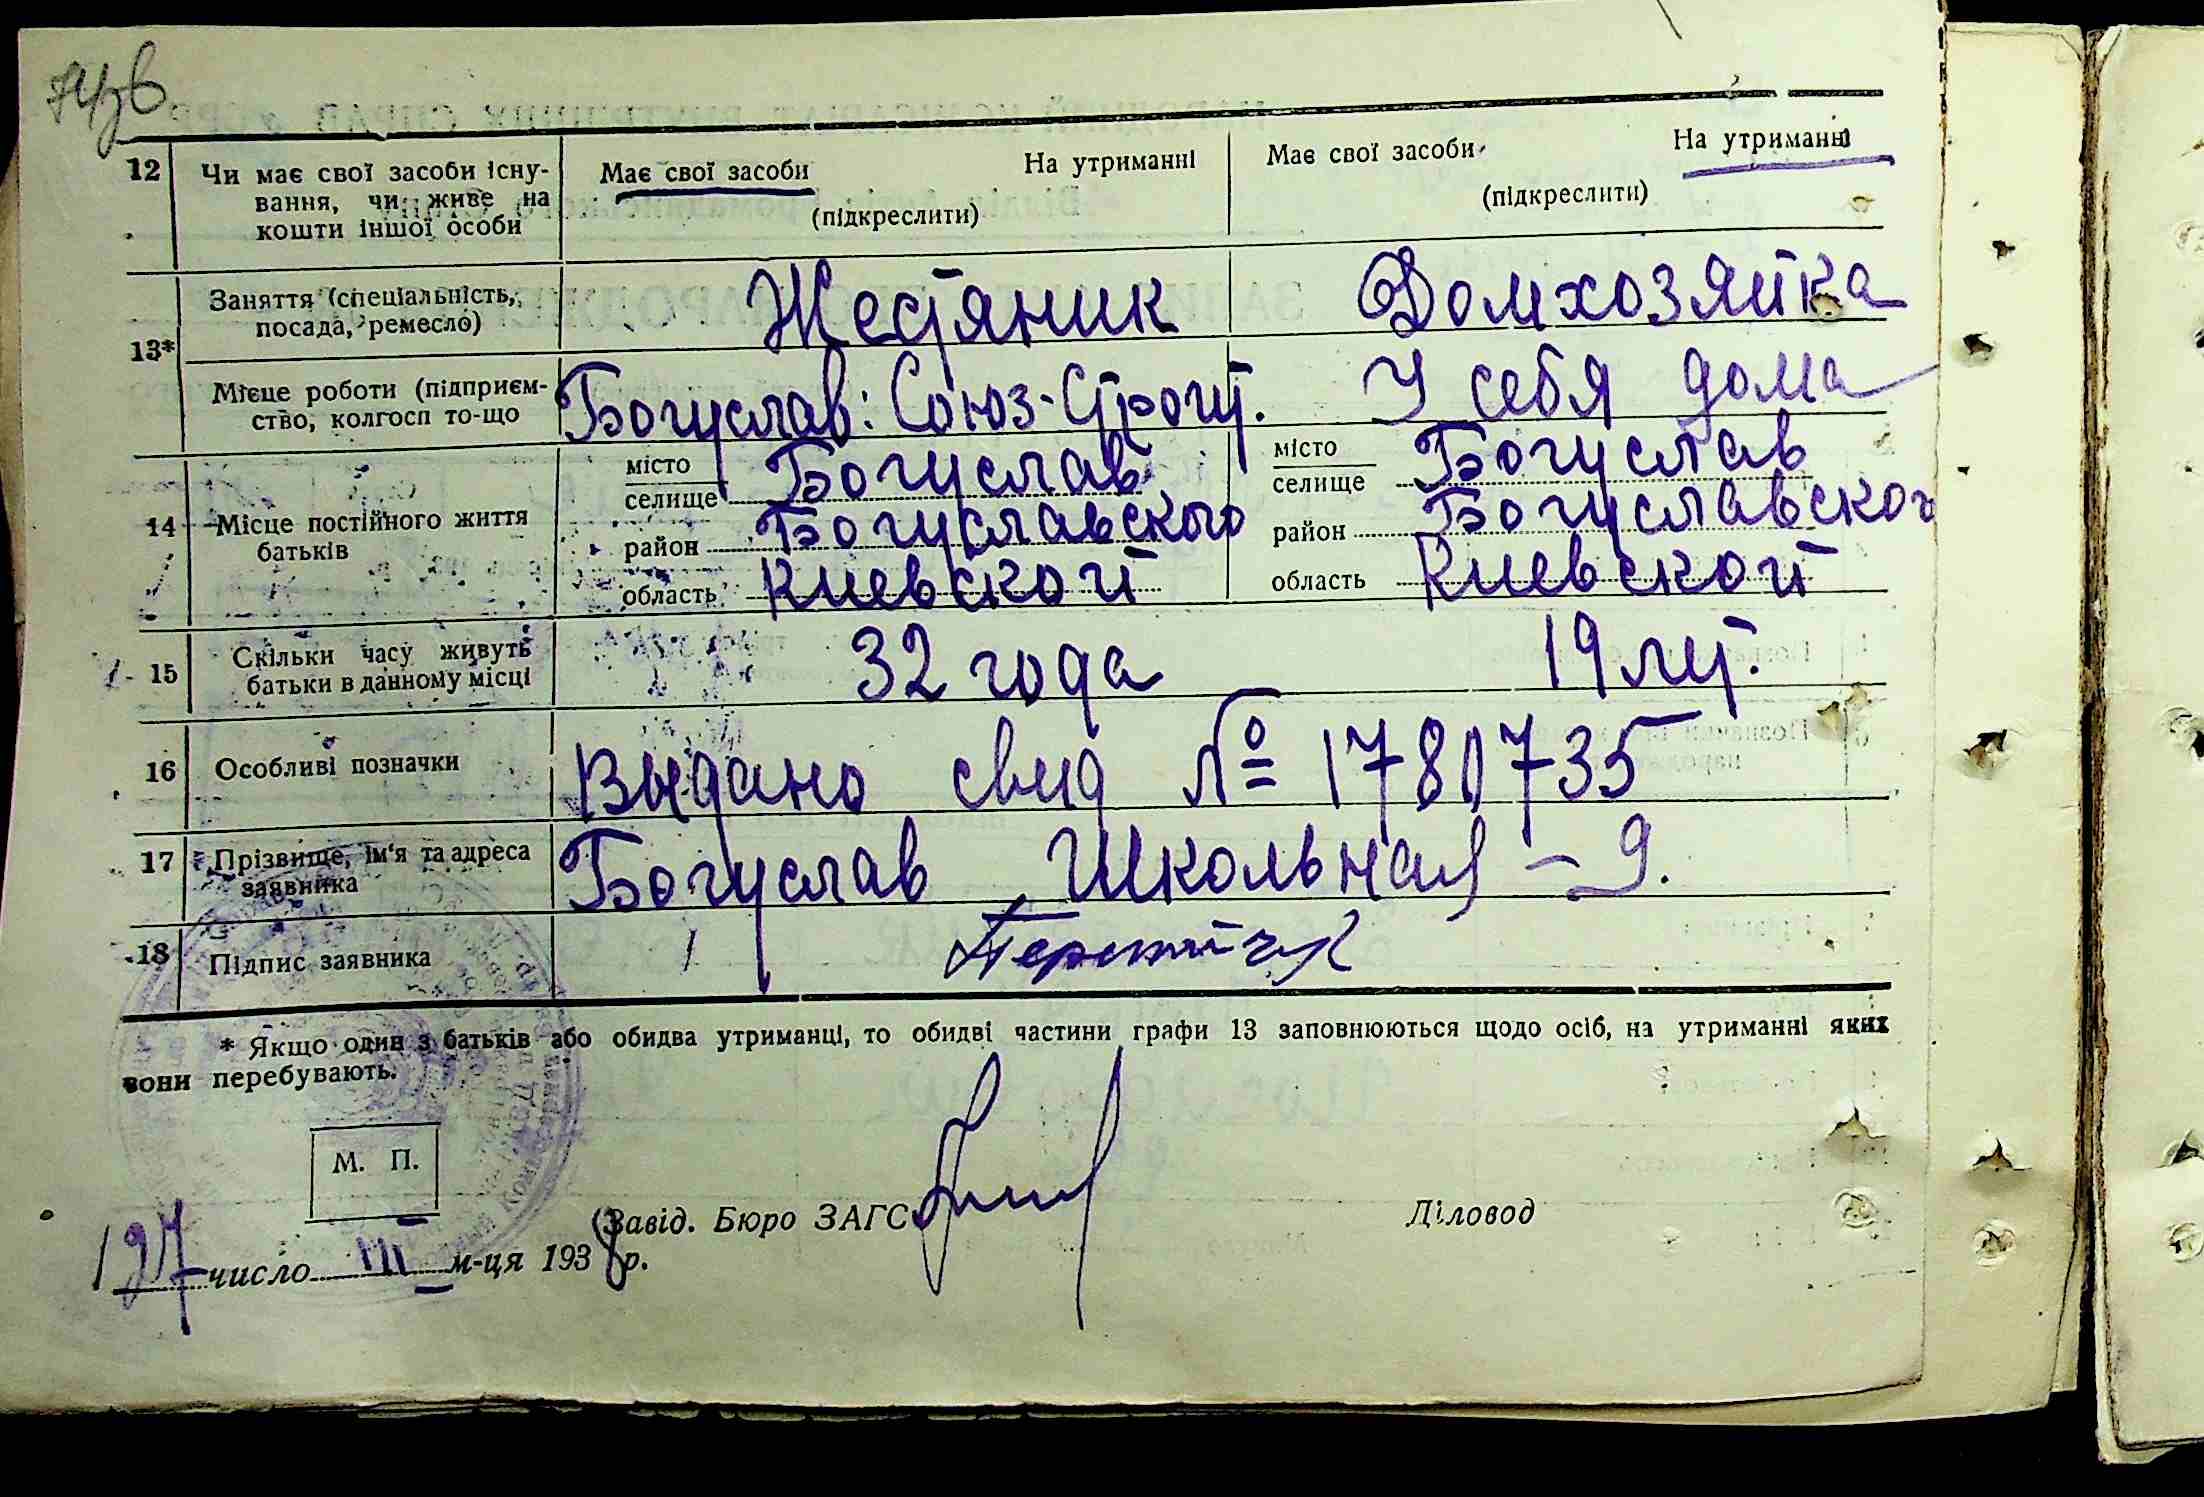 74зв
12 Чи має свої засоби існу-
вання, чи живе на
кошти іншої особи
Має свої засоби На утриманні
(підкреслити)
Має свої засоби На утриманні
(підкреслити)
13*
Заняття (спеціальність,
посада, ремесло)
Жестяник Домхозяйка
Місце роботи (підприєм-
ство, колгосп то-що
Богуслав: Союз-Строит. У себя дома
14 Місце постійного життя
батьків
місто
селище Богуслав
район Богуславского
область Киевской
місто
селище Богуслав
район Богуславског
область Киевской
15 Скільки часу живуть
батьки в данному місці
32 года 19 лет.
16 Особливі позначки
Выдано свид № 1780735
17 Прізвище, ім'я та адреса
заявника
Богуслав Школьная – 9.
18 Підпис заявника
* Якщо один з батьків або обидва утриманці, то обидві частини графи 13 заповнюються щодо осіб, на утриманні яких
вони перебувають.
М. П.
Завід. Бюро ЗАГС
Діловод
число III м-ця 1938 р.